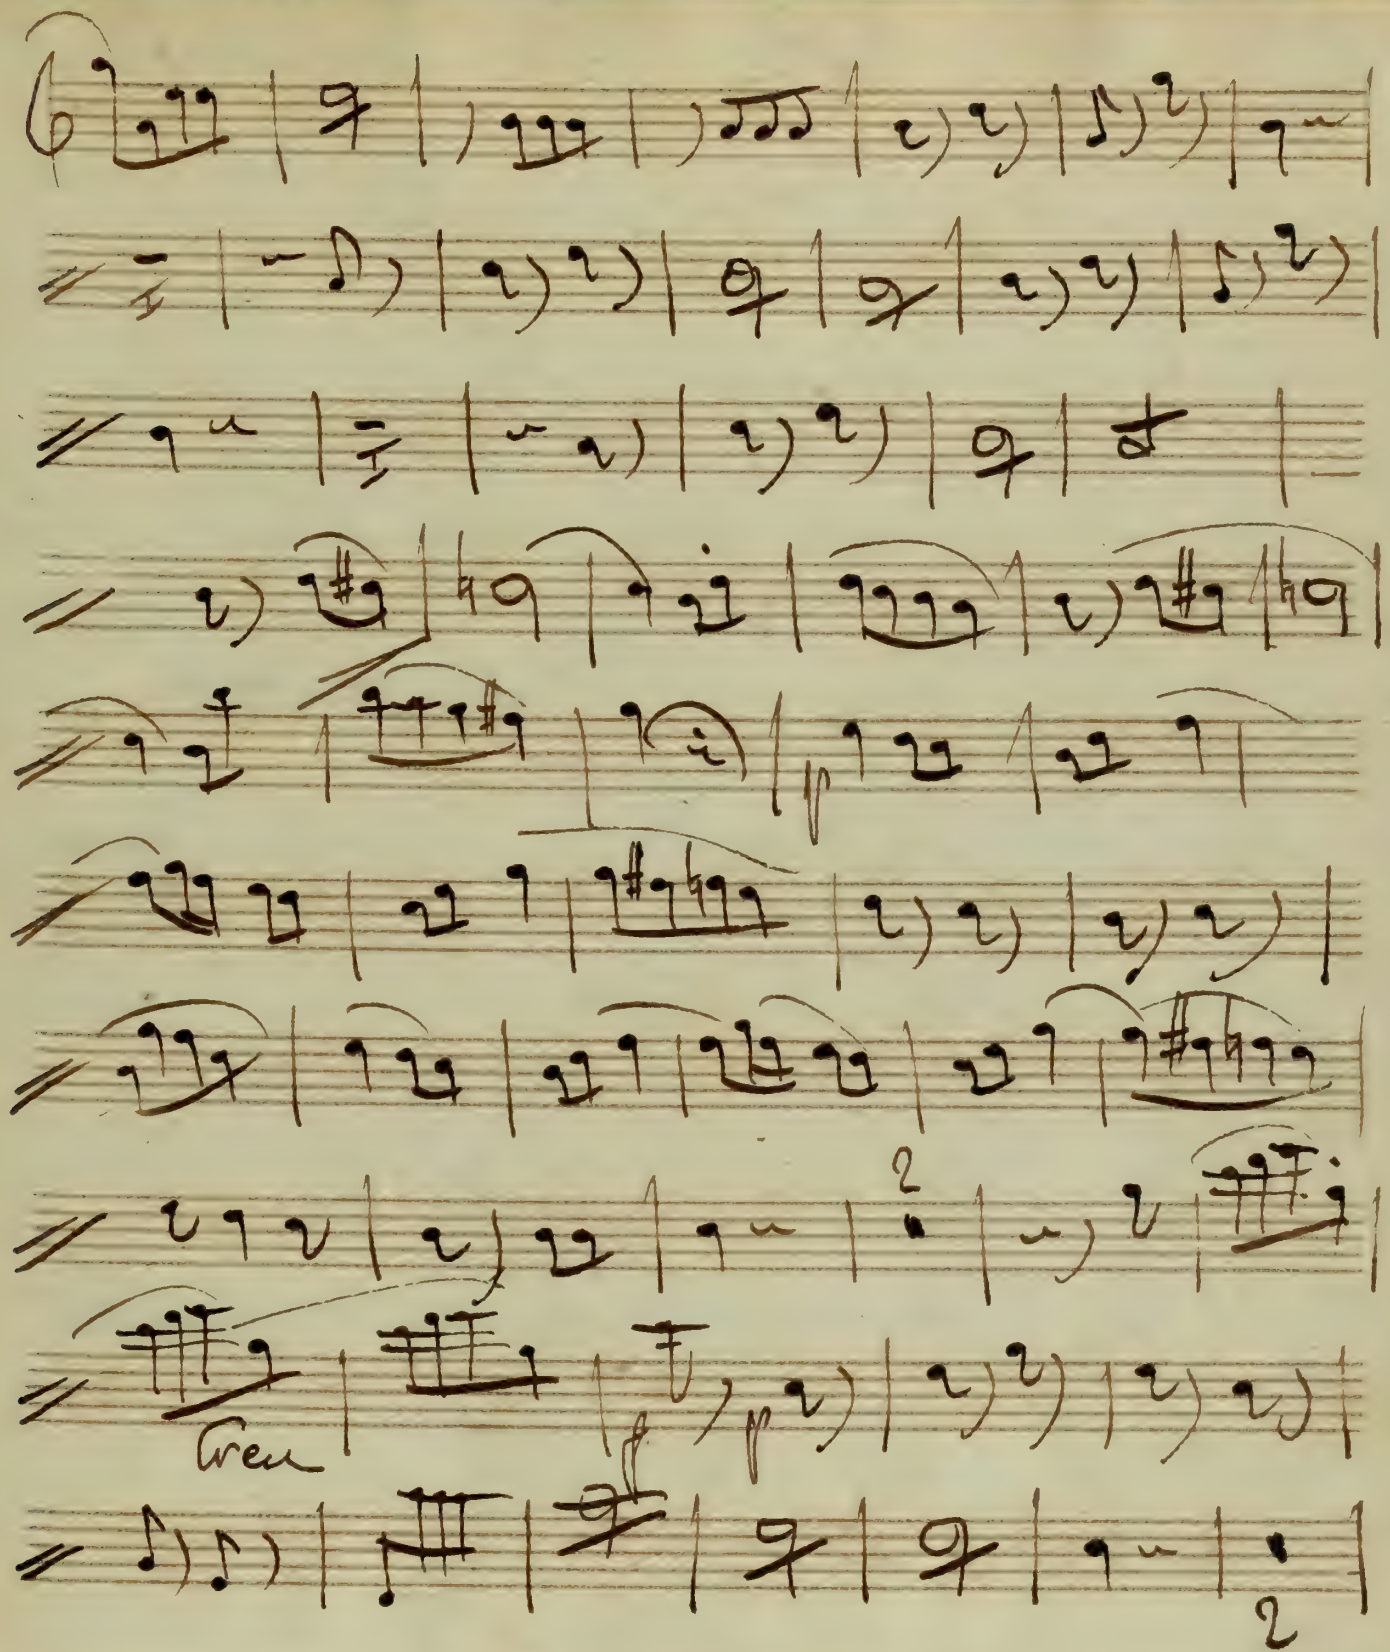 p
2
Cresc
f p
2